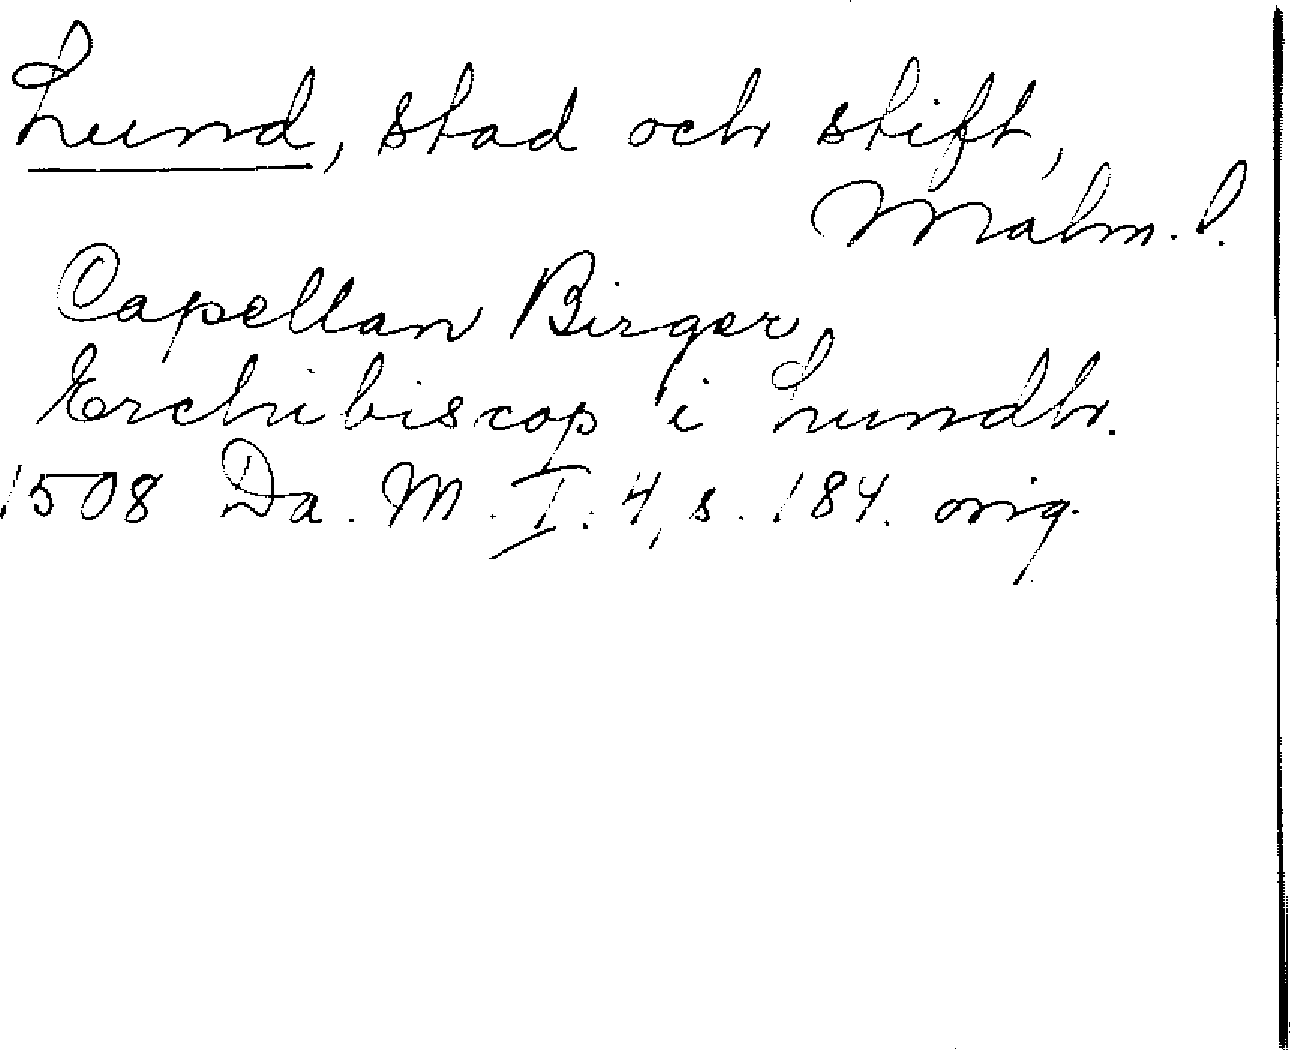 Lund, stad och stift,
Malm. l.
Capellan Birger,
Erchibiscop i Lundh.
1508 Da. M. I: 4, s. 184. orig.